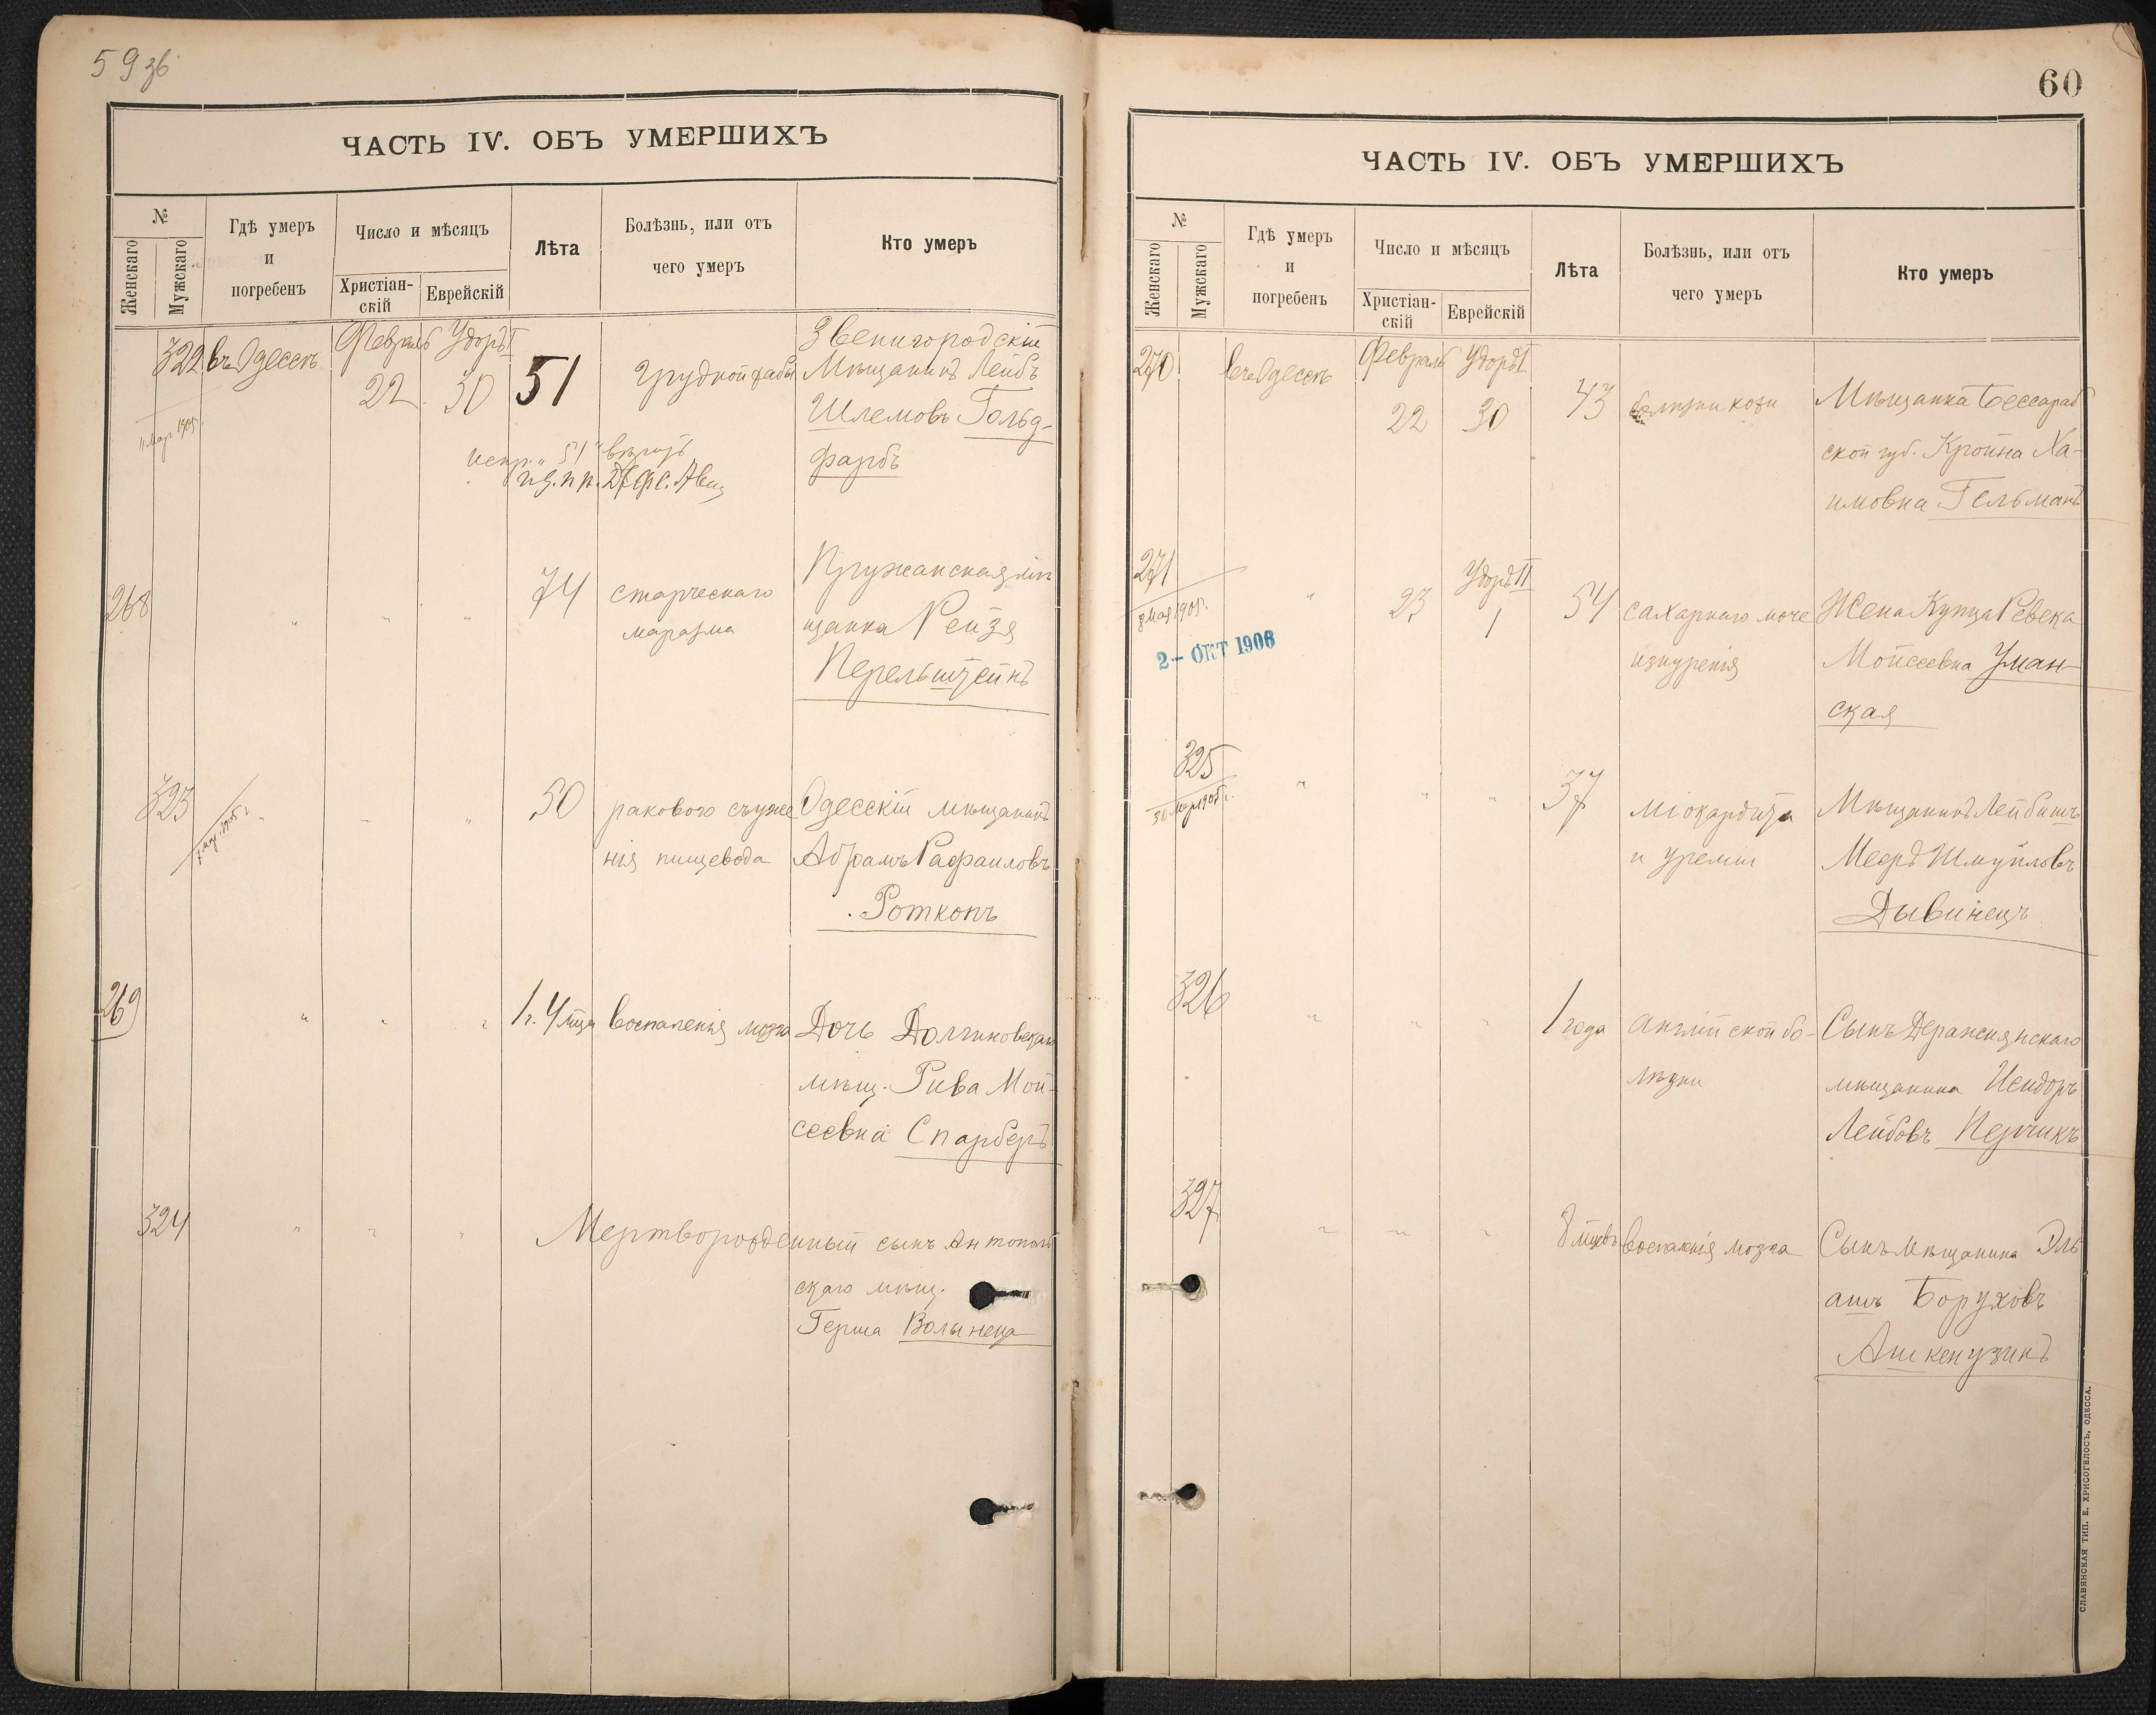 59 зв
ЧАСТЬ IV. ОБЪ УМЕРШИХЪ
№
Женскаго
Мужскаго
Гдѣ умеръ
и
погребенъ
Число и мѣсяцъ
Христіан-
скій
Еврейскій
Лѣта
Болѣзнь, или отъ
чего умеръ
Кто умеръ
322 въ Одессѣ Февраль Удоръ I 22 30 51 грудной жабы
Звенигородскій
Мѣщанинъ Лейбъ
Шлемовъ Гольд-
фарбъ
11 мар 1905
испр. „51“
268 " " " 74 старческаго
маразма
Пружанская мѣ
щанка Рейзя
Перельштейнъ
323 " " " 50 раковаго съуже
нія пищевода
Одесскій мѣщанинъ
Абрамъ Рафаиловъ
Роткопъ
269 " " " 1 г. 4 мца воспаленія мозга
Дочь Долгиновскаго
мѣщ. Рива Мои-
сеевна Спарберъ
324 " " " Мертворожденный сынъ Антополь
скаго мѣщ.
Герша Волынеца
60
ЧАСТЬ IV. ОБЪ УМЕРШИХЪ
№
Женскаго
Мужскаго
Гдѣ умеръ
и
погребенъ
Число и мѣсяцъ
Христіан-
скій
Еврейскій
Лѣта
Болѣзнь, или отъ
чего умеръ
Кто умеръ
270 въ Одессѣ Февраль Удоръ I 22 30 43
Мѣщанка Бессараб
ской губ. Кройна Ха-
имовна Гельманъ
271 " 23 Удоръ II 1 54 сахарнаго моче
изнуренія
Жена Купца Ревека
Моисеевна Уман-
ская
8 мая 1905г.
2 - ОКТ 1906
325 " " " 37 міокардита
и уреміи
Мѣщанинъ Лейбишъ
Меоръ Шмуйловъ
Дывинецъ
30 мар 1905 г.
326 " " " 1 года англійской бо-
лѣзни
Сынъ Деражнянскаго
мѣщанина Исидоръ
Лейбовъ Перчикъ
327 " " " 8 мцевъ воспаленія мозга
Сынъ мѣщанина Эль
ашъ Боруховъ
Ашкенузинъ
СЛАВЯНСКАЯ ТИП. Е. ХРИСОГЕЛОСЪ, ОДЕССА.